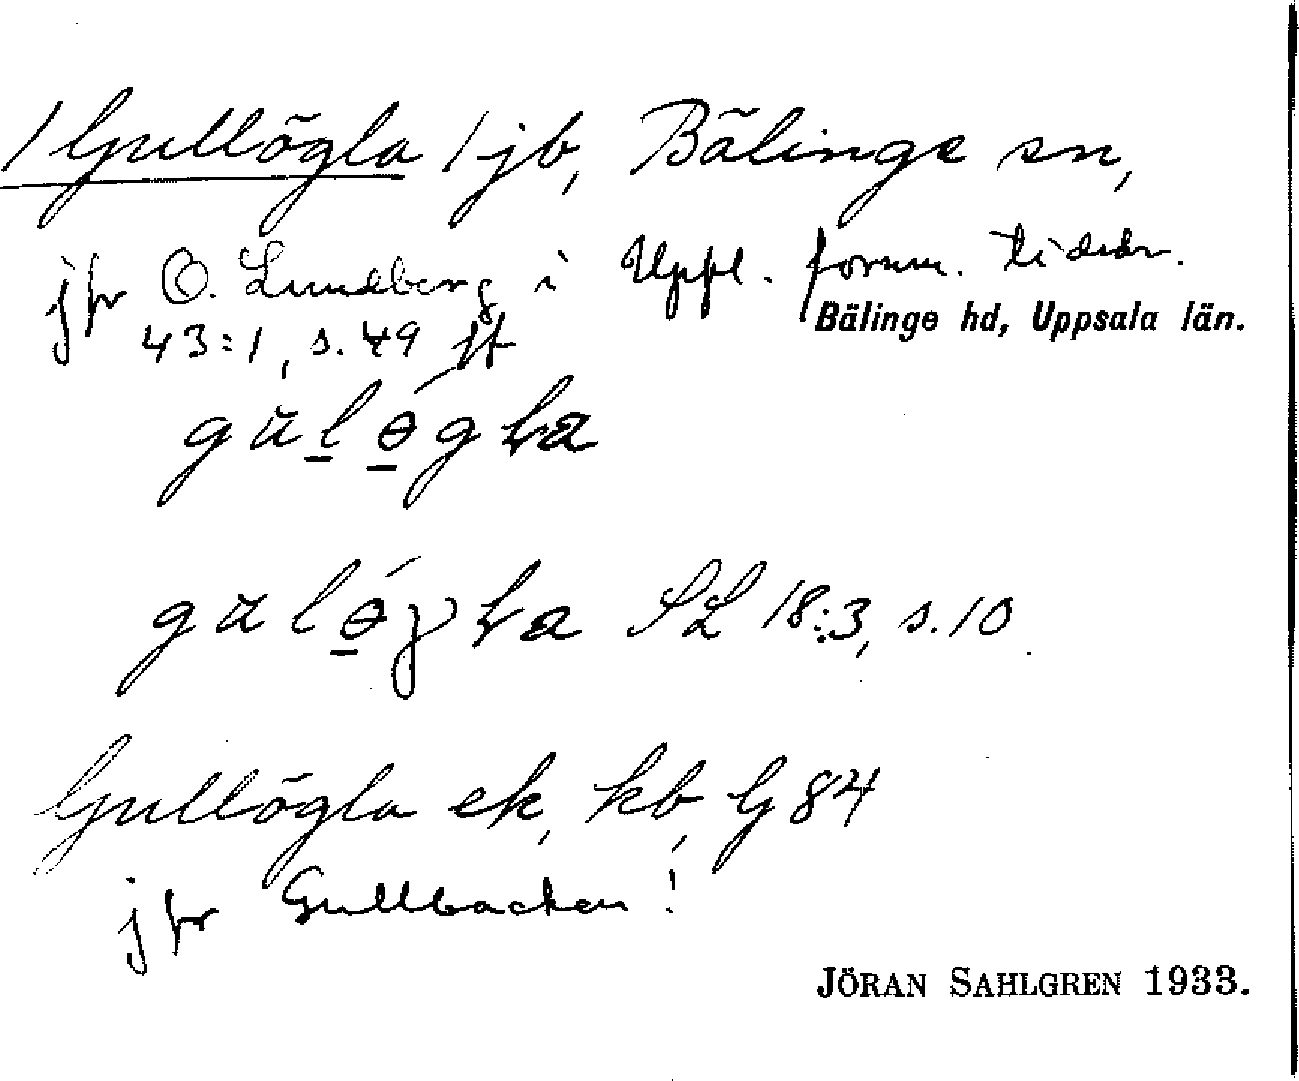 1 Gullögla 1 jb, Bälinge sn,
jfr O. Lundberg i Uppl. fornm. tidskr.
43:1, s. 49 ff
Bälinge hd, Uppsala län.
SL 18:3, s. 10
Gullögla ek, kb, G 84
jfr Gullbacken!
JÖRAN SAHLGREN 1933.